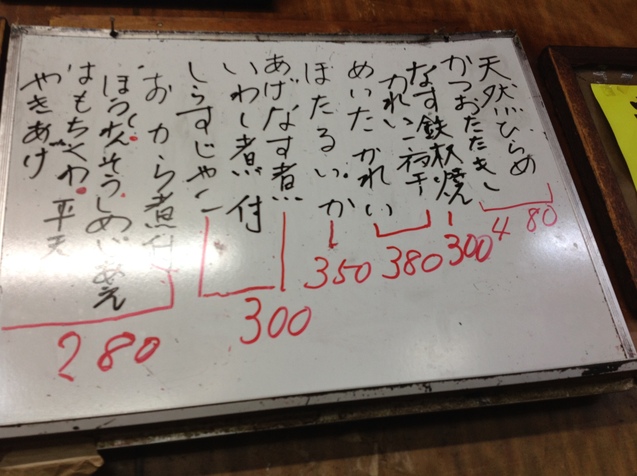 天然ひらめ
かつおたたき
480
なす鉄板焼
300
かれい一夜干
めいたかれい
380
ほたるいか
350
あげなす煮
いわし煮付
しらすじゃこ
300
おから煮付
ほうれんそうしめじあえ
はもちくわ・平天
やきあげ
280